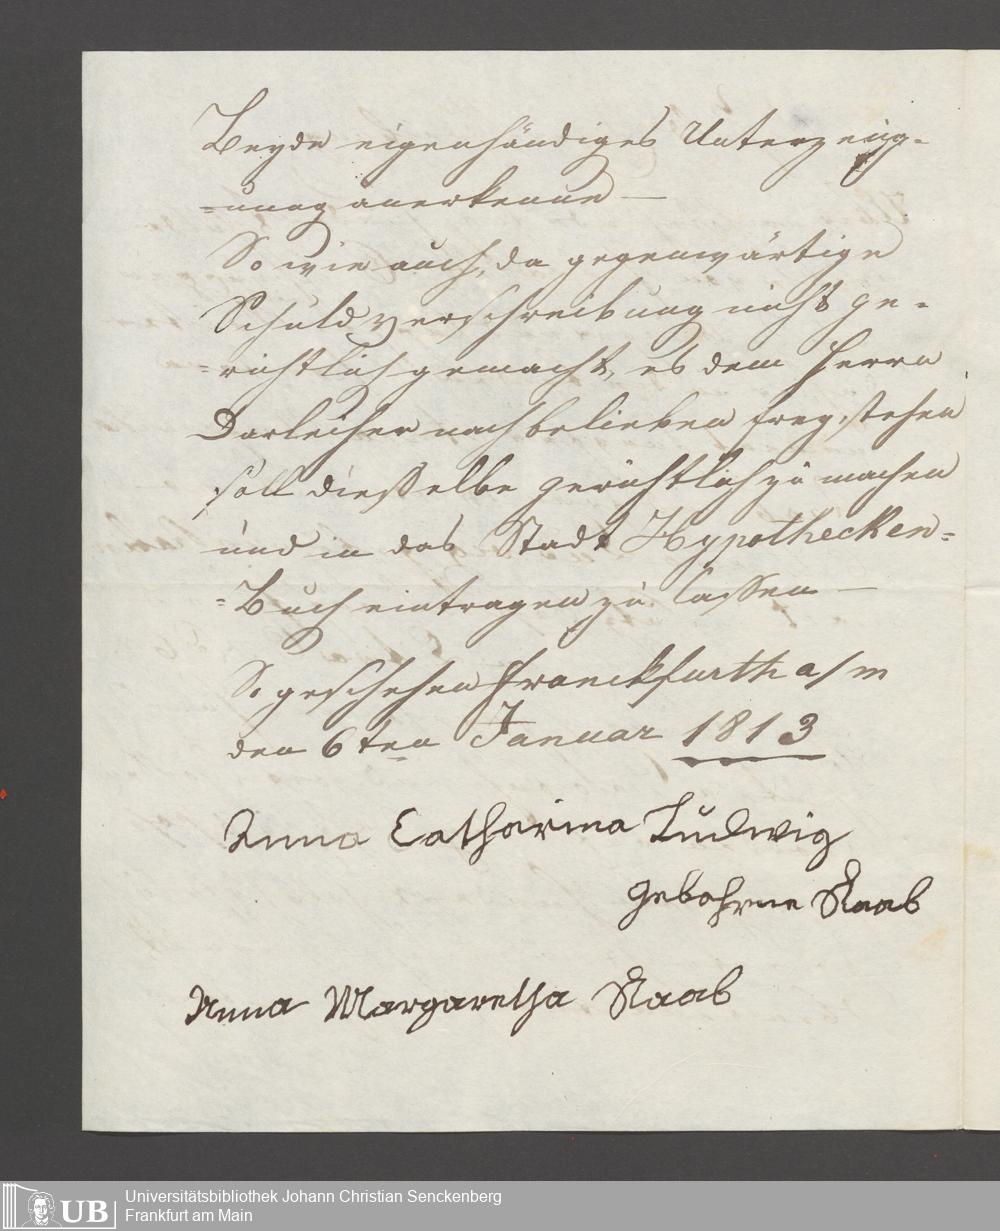 Beyde eigenhändiges Unterzeug-
-unng anerkenne —
So wie auch, da gegenwärtige
Schuldverschreibung nicht ge-
=richtlich gemacht, es dem Herrn
Darleiher nach belieben frey stehen
soll dießelbe gerichtlich zu machen
und in das Stadt Hypothecken=
=Buch eintragen zu laßen —
So geschehen Franckfurth a/m
den 6ten Januar 1813
Anna Catharina Ludwig
gebohrne Raab
Anna Margaretha Raab
UB
Universitätsbibliothek Johann Christian Senckenberg
Frankfurt am Main